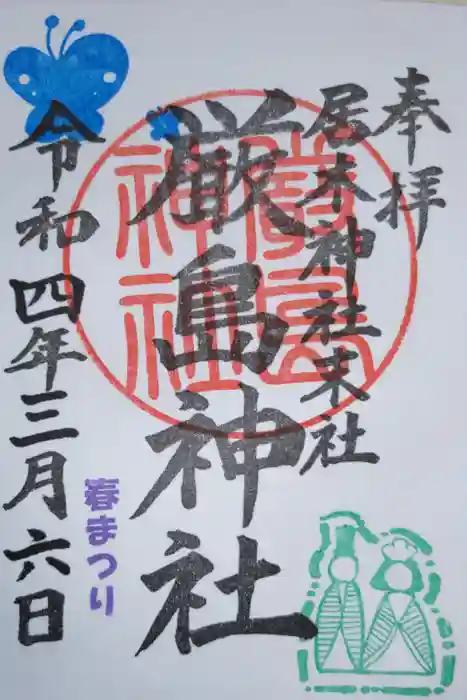 奉拝
居木神社末社
厳島神社
厳島神社
春まつり
令和四年三月六日